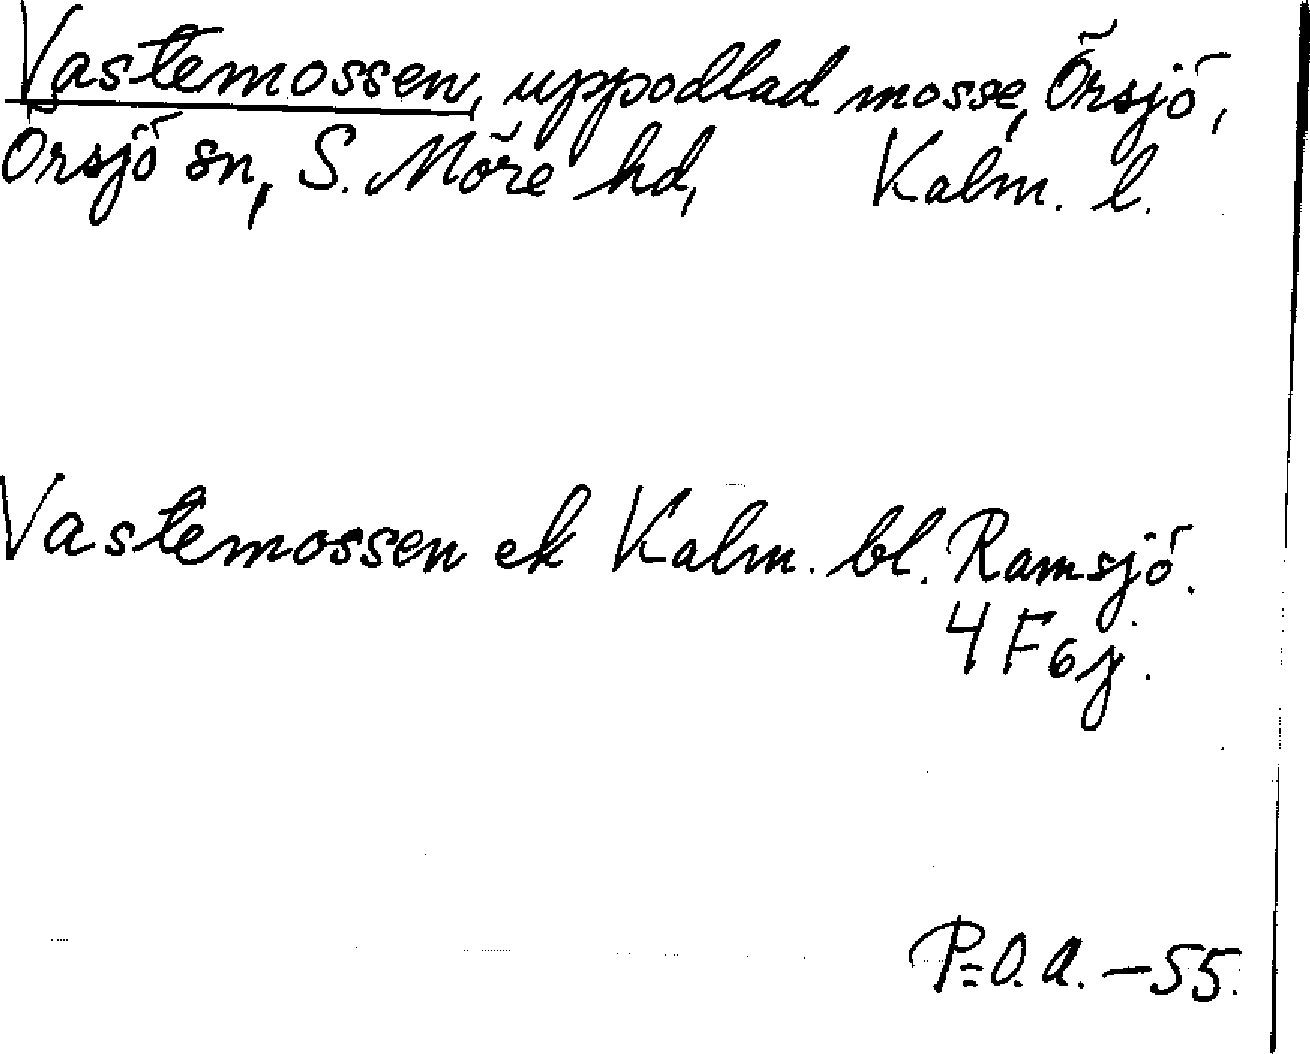 Vastemossen, uppodlad mosse, Örsjö,
Örsjö sn, S. Möre hd, Kalm. l.
Vastemossen ek Kalm. bl. Ramsjö.
4 F 6 j.
P.O.A. – 55.